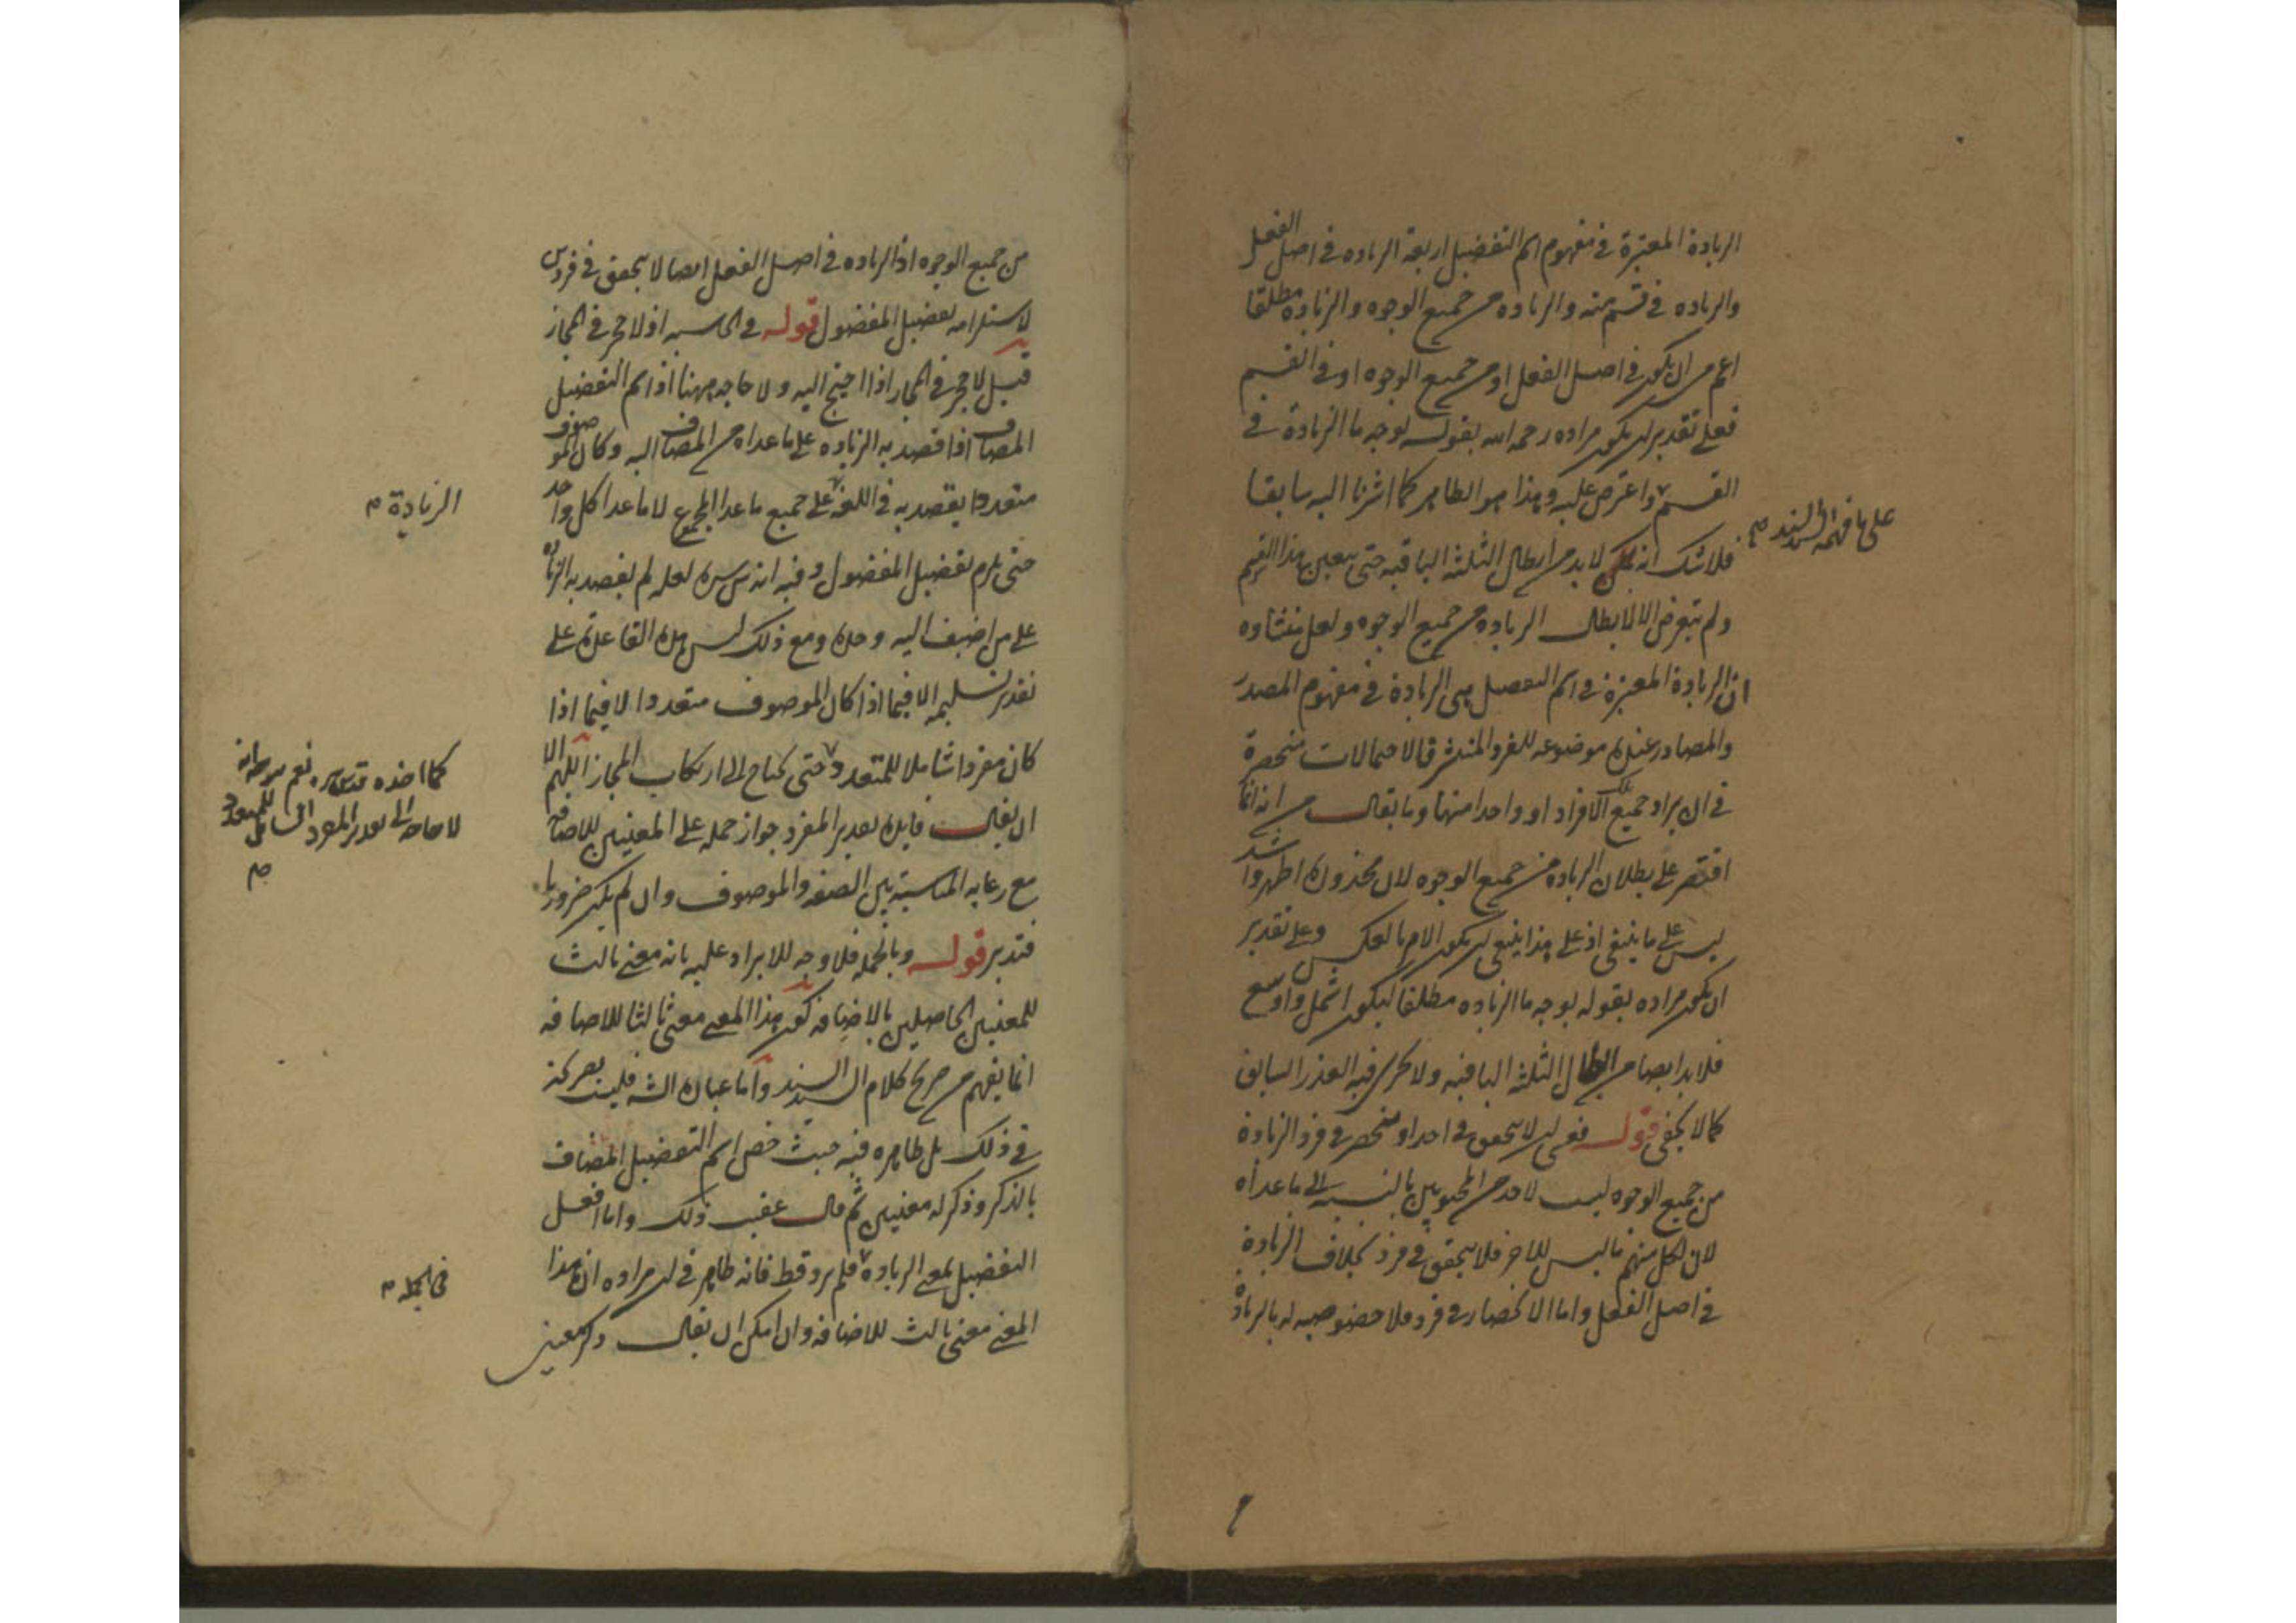 الزيادة المعتبرة في مفهوم اسم التفضيل اربعة الزياده في اصل الفعل
والزياده في قسم منه والزياده من جميع الوجوه والزيادة مطلقا
اعم من ان يكون في اصل الفعل او من جميع الوجوه او في القسم
فعلى تقدير ان يكون مراده رحمه الله بقوله بوجه ما الزيادة في
القسم واعترض عليه وهذا هو الظاهر كما اشرنا اليه سابقا
على ما فهمه السيد السند م
فلا شك انه لا بد من ابطال الثلثة الباقيه حتى يتعين هذا القسم
ولم يتعرض الا لابطال الزيادة من جميع الوجوه ولعل منشاوه
ان الزيادة المعتبرة في اسم التفضيل هي الزيادة في مفهوم المصدر
والمصادر عنده موضوعه للفرد المنتشر فالاحتمالات منحصرة
في ان يراد جميع تلك الافراد او واحدا منها وما يقال من انه انما
اقتصر على بطلان الزيادة من جميع الوجوه لان محذوره اظهر واشد
ليس على ما ينبغي اذ على هذا ينبغي ان يكون الامر بالعكس وعلى تقدير
ان يكون مراده بقوله بوجه ما الزياده مطلقا ليكون اشمل واوسع
فلا بد ايضا من ابطال الثلثه الباقيه ولا يجري فيه العذر السابق
كما لا يخفى قوله فعى ان لا يتحقق في احد او منحصر في فرد الزيادة
من جميع الوجوه ليست لاحد من المحبوبين بالنسبة الى ما عداه
لان لكل منهم ما ليس للاخر فلا يتحقق في فرد بخلاف الزيادة
في اصل الفعل واما الانحصار في فرد فلا خصوصيه له بالزيادة
من جميع الوجوه اذ الزياده في اصل الفعل ايضا لا يتحقق في فردين
لاستلزامه تفضيل المفضول قوله في الحاشيه اذ لا حجر في المجاز
قيل لا حجر في المجاز اذا احتيج اليه ولا حاجه ههنا اذ اسم التفضيل
المضاف اذا قصد به الزياده على ما عداه من المضاف اليه وكان الموصوف
متعددا يقصد به في اللغة على جميع ما عدا المجموع لا ما عدا كل واحد
الزيادة م
حتى يلزم تفضيل المفضول وفيه انه قدس سره لعله لم يقصد به الزيادة
على من اضيف اليه وحده ومع ذلك ليس هذه القاعدة على
تقدير تسليمه الا فيما اذا كان الموصوف متعددا لا فيما اذا
كان مفردا شاملا للمتعدد حتى يحتاج الى ارتكاب المجاز اللهم الا
كما اخذه قدس سره نعم
لا حاجة الى تقدير المفرد الشامل للمتعدد
م
ان يقال فايده تقدير المفرد جواز حمله على المعنيين للاضافة
مع رعايه المناسبة بين الصفه والموصوف وان لم يكن ضروريا
فتدبر قوله وبالجمله فلا وجه للايراد عليه بانه معنى ثالث
للمعنيين الحاصلين بالاضافه كون هذا المعنى معنى ثالثا للاضافه
انما يفهم من صريح كلام السيد السند واما عباره الشه فليست بصريحة
في ذلك بل ظاهره فيه حيث خص اسم التفضيل المضاف
بالذكر وذكر له معنيين ثم قال عقيب ذلك واما افعل
التفضيل بمعنى الزيادة فلم يرد قط فانه ظاهر في ان مراده ان هذا
في الجمله م
المعنى معنى ثالث للاضافه وان امكن ان يقال ذكر معنيين